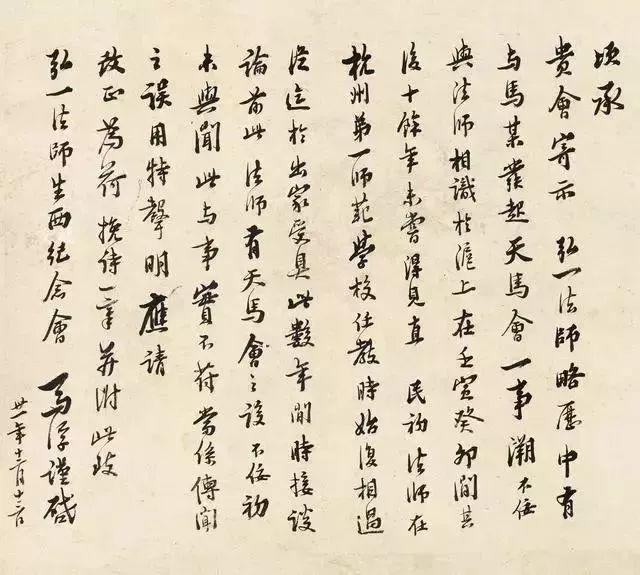 頃承
貴會寄示 弘一法師略歷中有
与馬某發起天馬會一事溯不佞
與法師相識於滬上在壬寅癸卯間其
後十餘年未嘗得見直 民初法師在
杭州第一師範學校任教時始復相過
從迄於出家受具此數年間時接談
論前此法師有天馬會之設不佞初
未與聞此与事實不符當係傳聞
之誤用特聲明應請
改正為荷挽詩一章并附此致
弘一法師生西紀念會 馬浮謹啟
卅一年十二月十二日